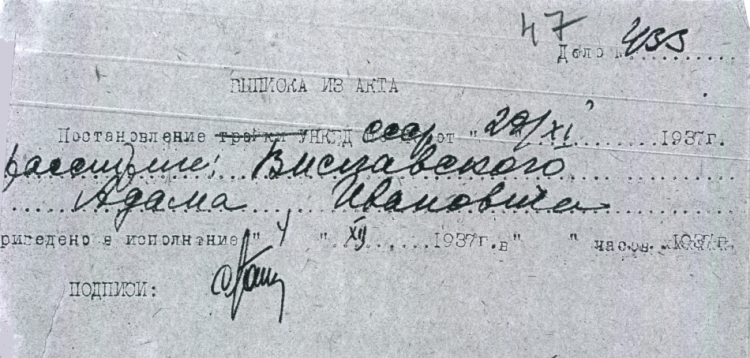 47
Дело № 433
ВЫПИСКА ИЗ АКТА
Постановление тройки УНКВД СССР от "29/XI" 1937г.
расстреле: Виславского
Адама Ивановича
приведено в исполнение " 4 " XII 1937г. в " " часов 1937г.
ПОДПИСИ: